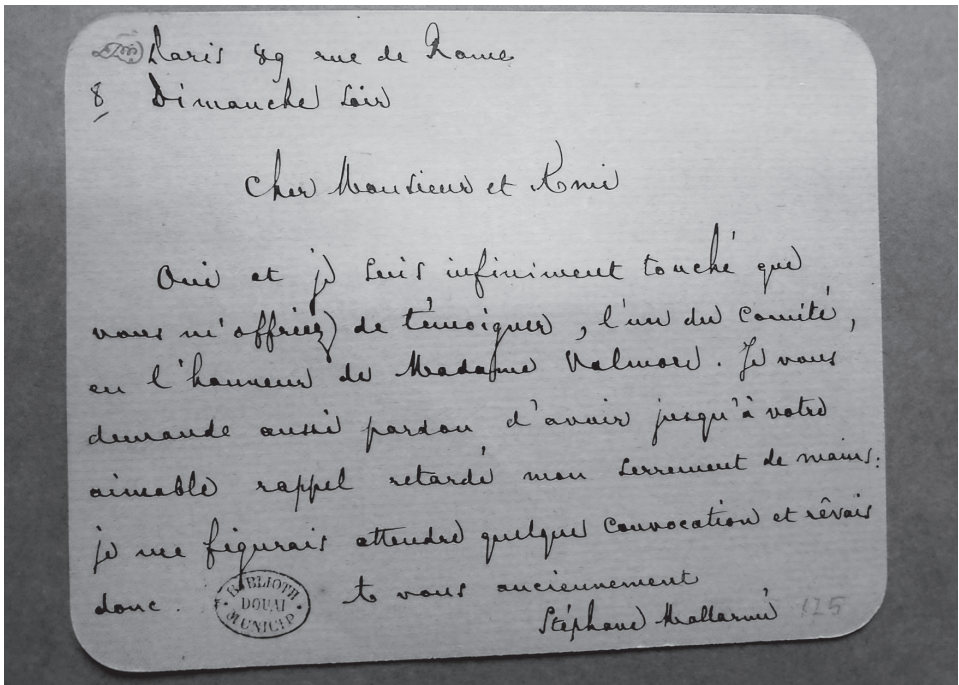 Paris 89 rue de Rome
8 Dimanche soir
Cher Monsieur et Ami
Oui et je suis infiniment touché que
vous m'offriez de témoigner, l'un du Comité,
en l'honneur de Madame Valmore. Je vous
demande aussi pardon d'avoir jusqu'à votre
aimable rappel retardé mon serrement de mains:
je me figurais attendre quelque convocation et rêvais
donc. à vous anciennement
BIBLIOTH. DOUAI MUNICIP.
Stéphane Mallarmé 125